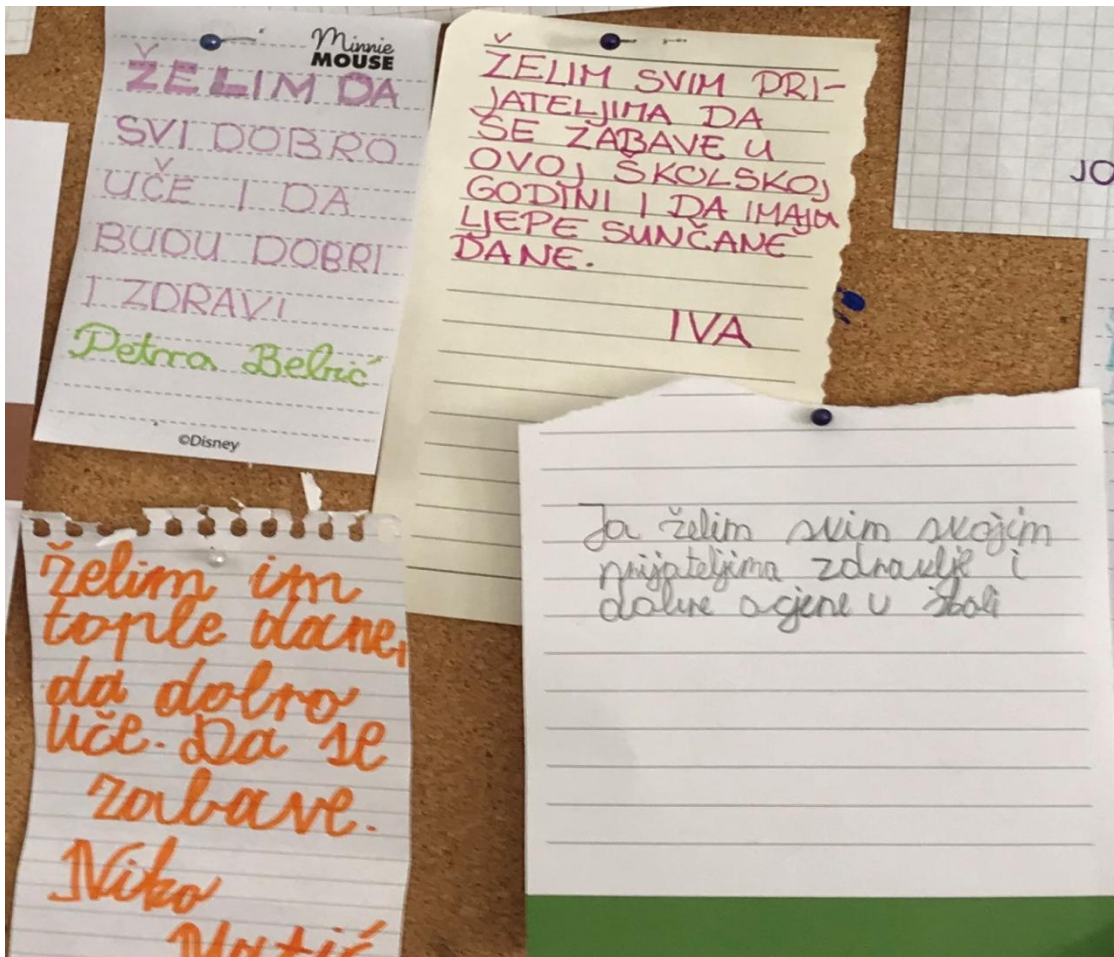 Minnie
MOUSE
ŽELIM DA
SVI DOBRO
UČE I DA
BUDU DOBRI
I ZDRAVI
Petra Belić
©Disney
ŽELIM SVIM PRI-
JATELJIMA DA
SE ZABAVE U
OVOJ ŠKOLSKOJ
GODINI I DA IMAJU
LJEPE SUNČANE
DANE.
IVA
JO
želim im
tople dane,
da dobro
uče. Da se
zabave.
Niko
Matić
Ja želim svim svojim
prijateljima zdravlje i
dobre ocjene u školi